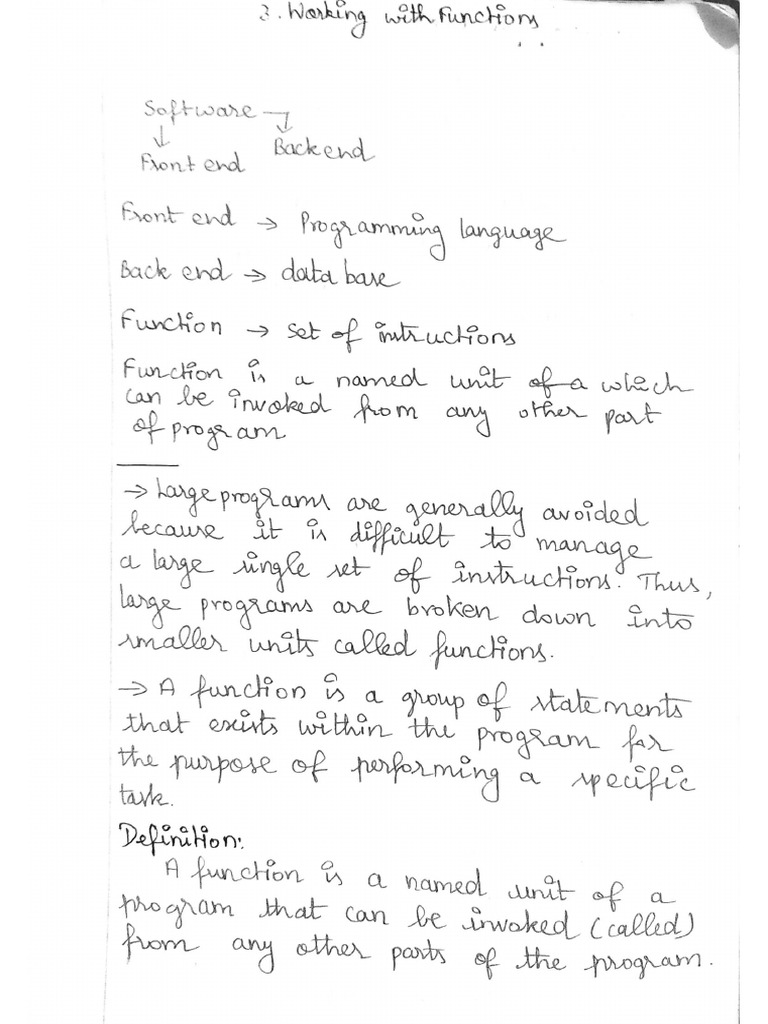 3. Working with Functions
Software →
↓ Backend
Front end
Front end → Programming language
Back end → data base
Function → set of instructions
Function is a named unit of a which
can be invoked from any other part
of program
→ Large programs are generally avoided
because it is difficult to manage
a large single set of instructions. Thus,
large programs are broken down into
smaller units called functions.
→ A function is a group of statements
that exists within the program for
the purpose of performing a specific
task.
Definition:
A function is a named unit of a
program that can be invoked (called)
from any other parts of the program.